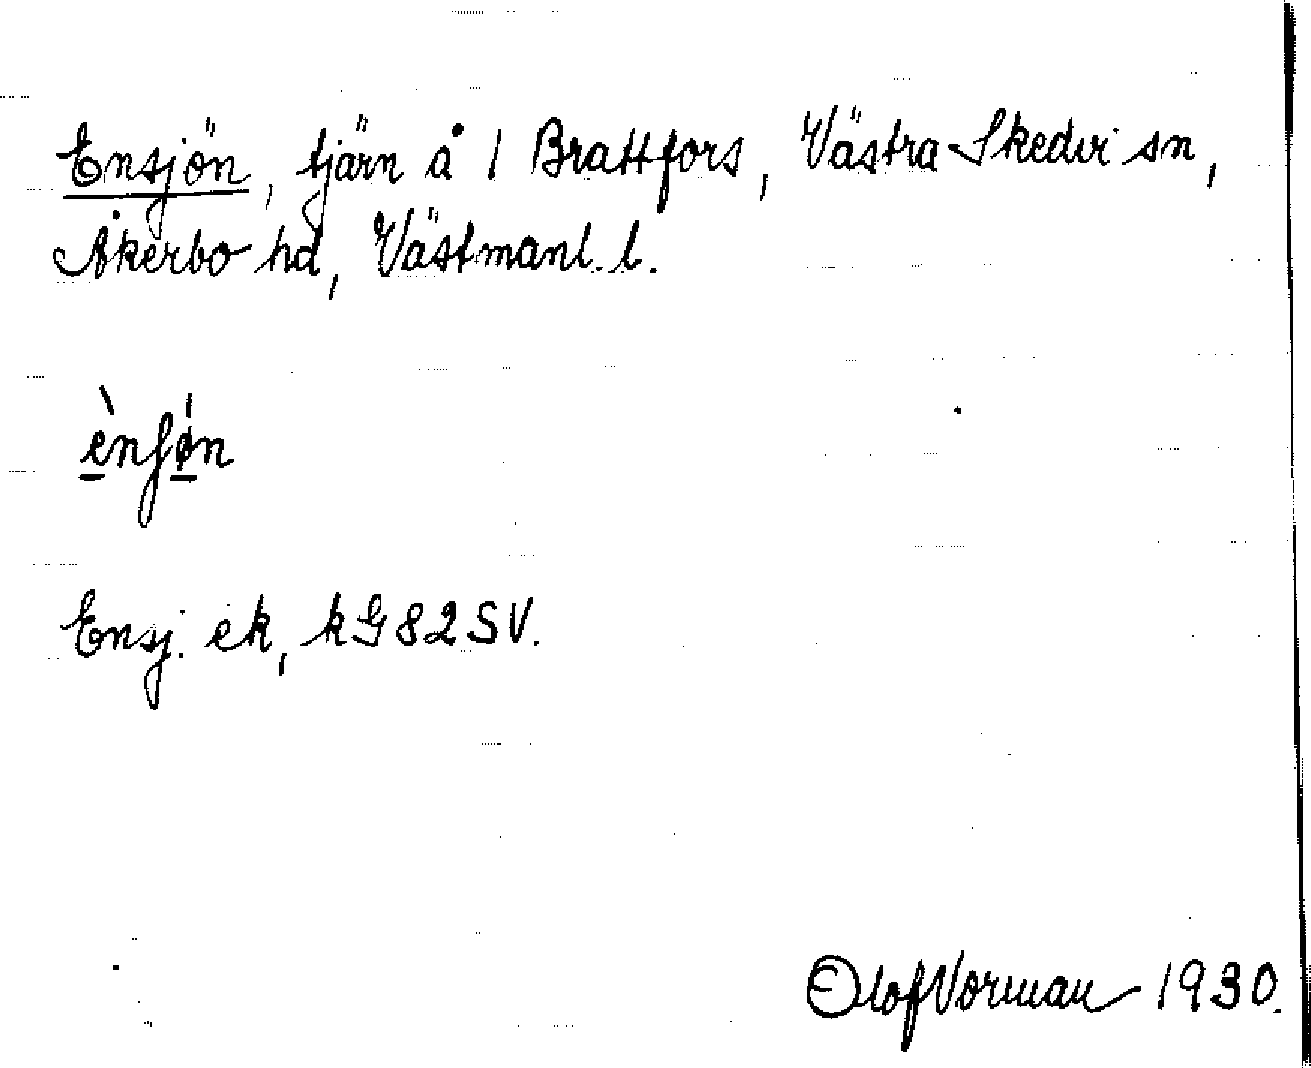 Ensjön, tjärn å 1 Brattfors, Västra Skedvi sn,
Åkerbo hd, Västmanl. l.
ènʃøn
Ensj. ek, kG82SV.
Olof Vorman 1930.